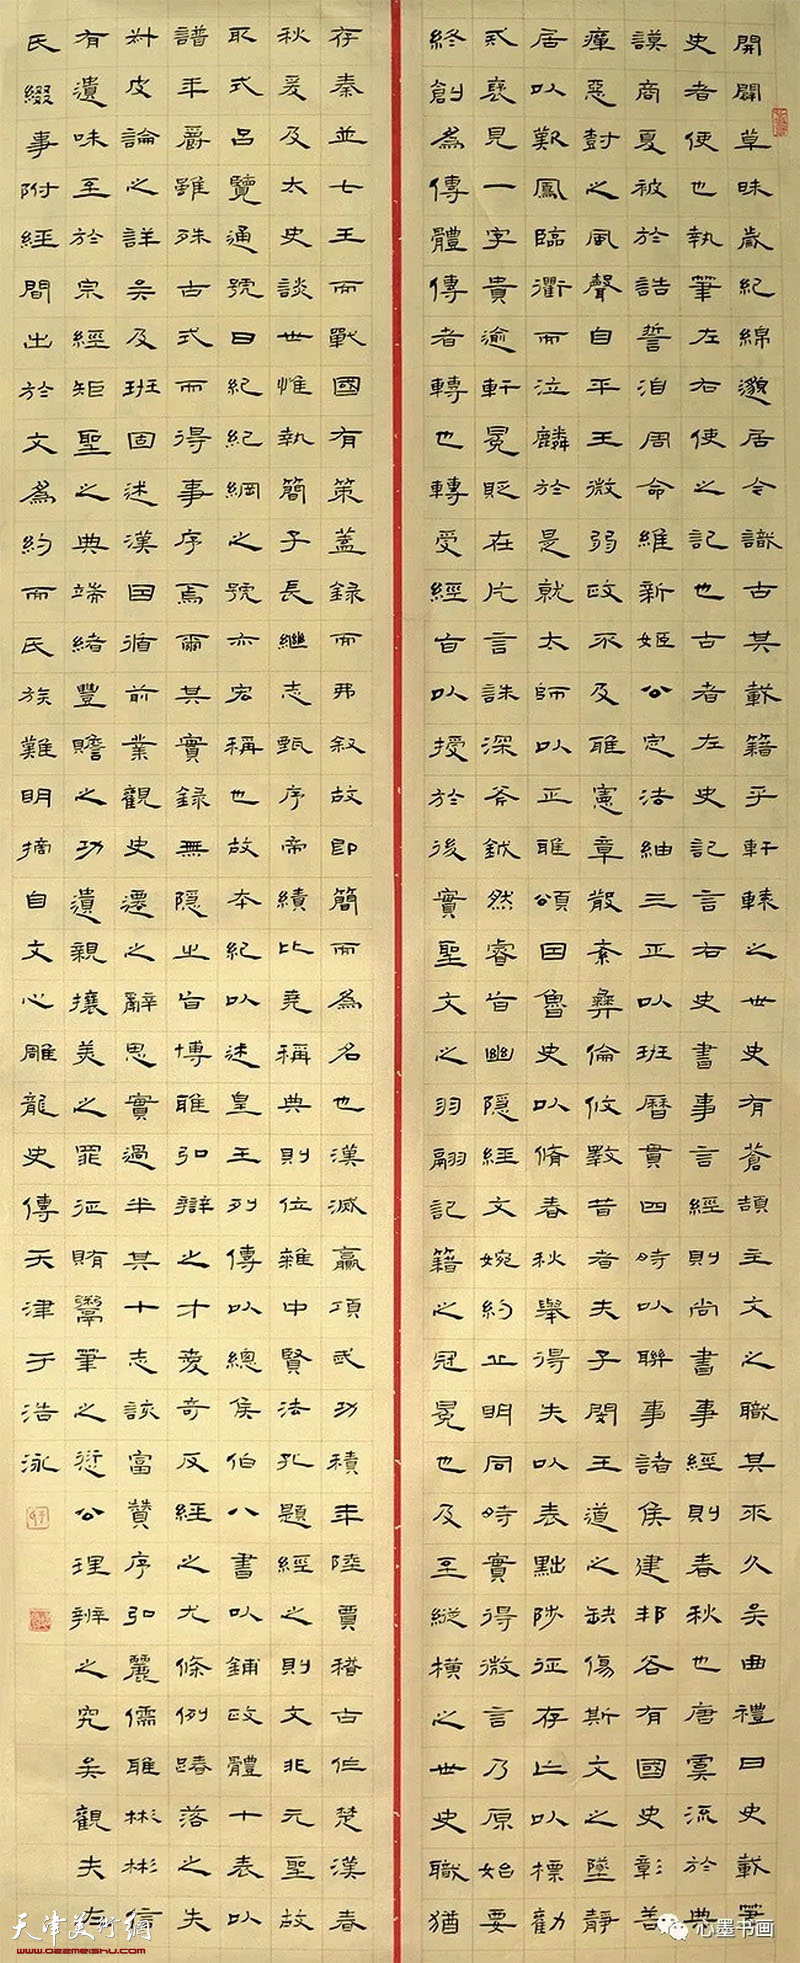 開闢草昧歲紀綿邈居今識古其載籍乎軒轅之世史有蒼頡主文之職其來久矣曲禮曰史載筆
史者使也執筆左右使之記也古者左史記言右史書事言經則尚書事經則春秋也唐虞流於典
謨商夏被於誥誓洎周命維新姬公定法紬三正以班曆貫四時以聯事諸侯建邦各有國史彰善
癉惡樹之風聲自平王微弱政不及雅憲章散紊彝倫攸斁昔者夫子閔王道之缺傷斯文之墜靜
居以歎鳳臨衢而泣麟於是就太師以正雅頌因魯史以脩春秋舉得失以表黜陟征存亡以標勸
戒褒見一字貴逾軒冕貶在片言誅深斧鉞然睿旨幽隱經文婉約丘明同時實得微言乃原始要
終創為傳體傳者轉也轉受經旨以授於後實聖文之羽翮記籍之冠冕也及至縱橫之世史職猶
存秦並七王而戰國有策蓋録而弗敘故即簡而為名也漢滅嬴項武功積年陸賈稽古作楚漢春
秋爰及太史談世惟執簡子長繼志甄序帝績比堯稱典則位雜中賢法孔題經之則文非元聖故
取式呂覽通號曰紀紀綱之號亦宏稱也故本紀以述皇王列傳以總侯伯八書以鋪政體十表以
譜年爵雖殊古式而得事序焉爾其實録無隱之旨博雅弘辯之才愛奇反經之尤條例踳落之失
叔皮論之詳矣及班固述漢因循前業觀史遷之辭思實過半其十志該富贊序弘麗儒雅彬彬信
有遺味至於宗經矩聖之典端緒豐贍之功遺親攘美之罪征賄鬻筆之愆公理辨之究矣觀夫左
氏綴事附經間出於文為約而氏族難明摘自文心雕龍史傳天津于浩泳
天津美術網
www.022meishu.com
心墨书画